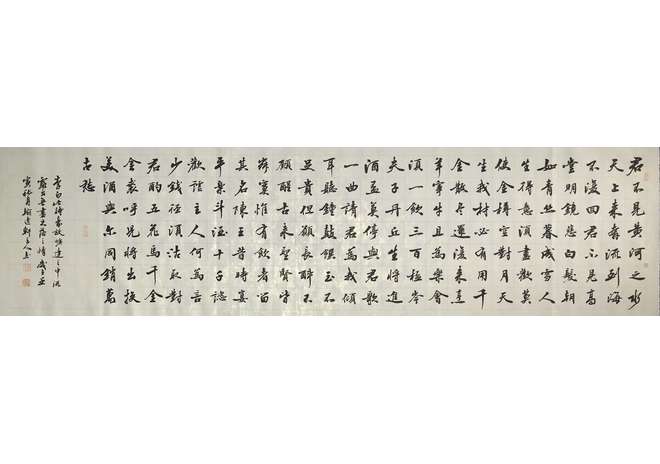 君不見黃河之水
天上來奔流到海
不復回君不見高
堂明鏡悲白髮朝
如青絲暮成雪人
生得意須盡歡莫
使金樽空對月天
生我材必有用千
金散盡還復來烹
羊宰牛且為樂會
須一飲三百杯岑
夫子丹丘生將進
酒盃莫停與君歌
一曲請君為我傾
耳聽鐘鼓饌玉不
足貴但願長醉不
願醒古來聖賢皆
寂寞惟有飲者留
其名陳王昔時宴
平樂斗酒十千恣
歡謔主人何為言
少錢徑須沽取對
君酌五花馬千金
金裘呼兒將出換
美酒與爾同銷萬
古愁
李白此詩豪放曠達之中